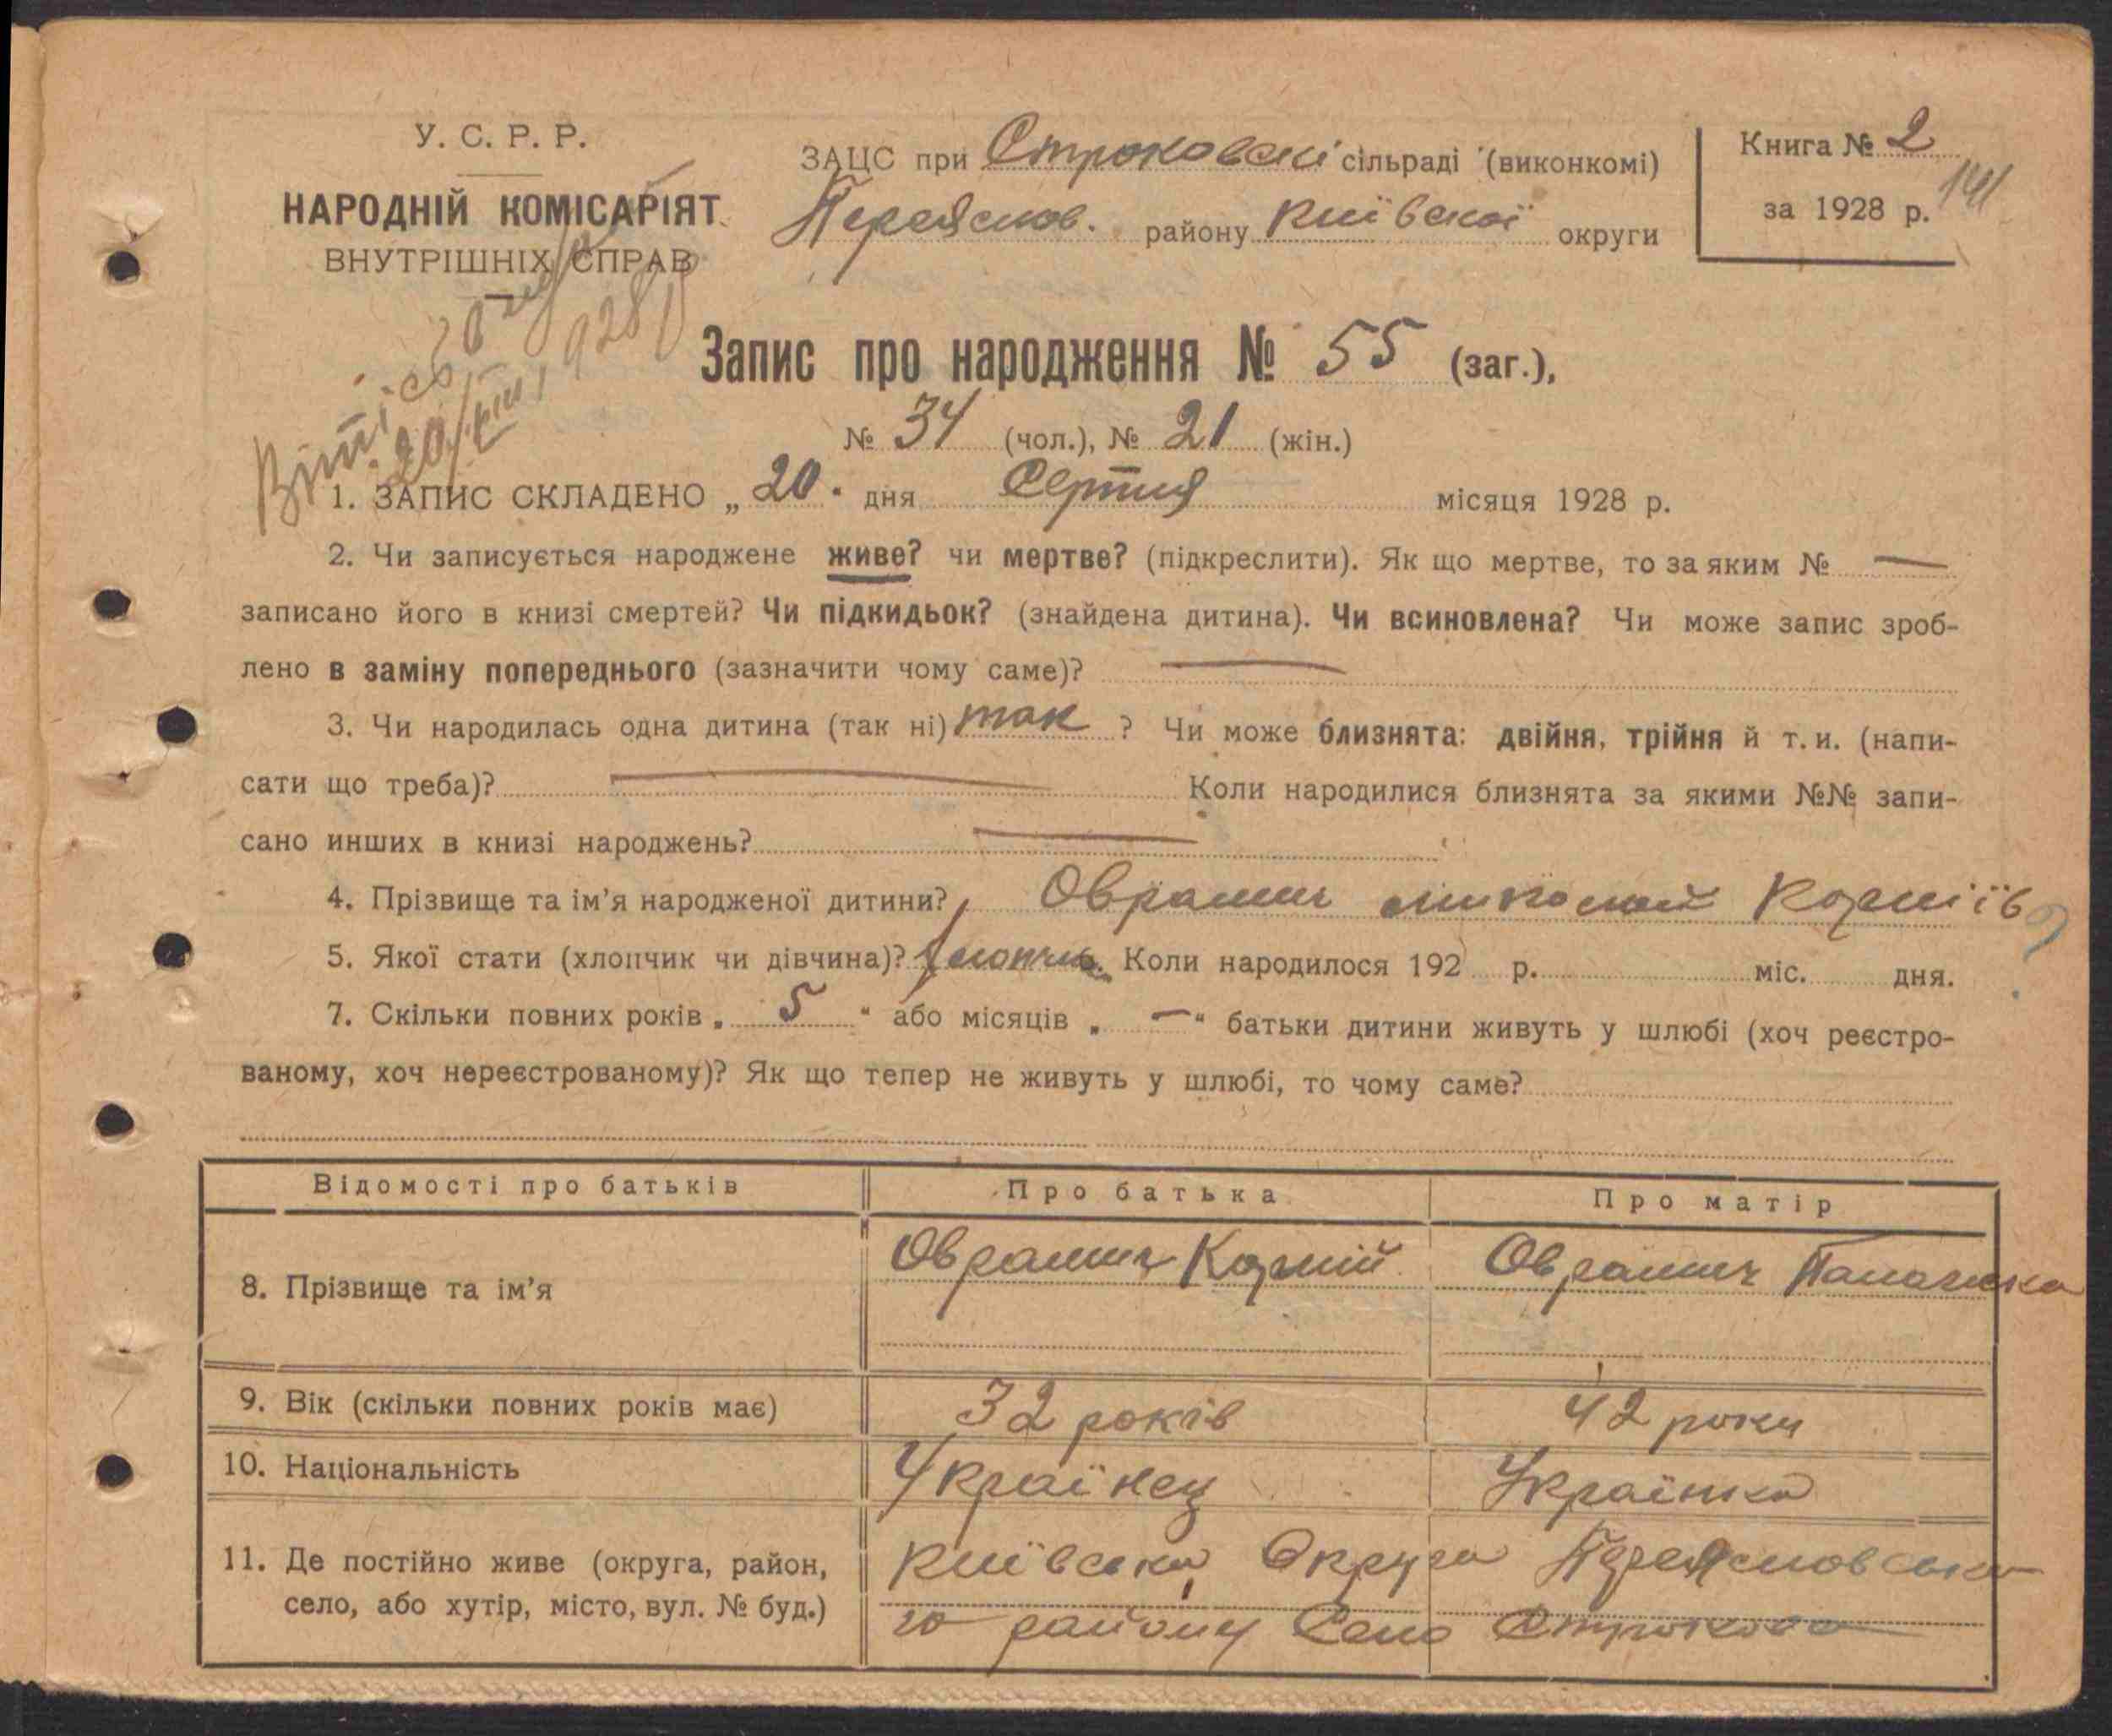 У. С. Р. Р.
НАРОДНІЙ КОМІСАРІЯТ
ВНУТРІШНІХ СПРАВ
ЗАЦС при Строковскі сільраді (виконкомі)
Переяслов. району Київської округи
Книга № 2
за 1928 р.
141
Запис про народження № 55 (заг.),
№ 34 (чол.), № 21 (жін.)
20/VIII 1928
1. ЗАПИС СКЛАДЕНО „ 20 " дня Серпня місяця 1928 р.
2. Чи записується народжене живе? чи мертве? (підкреслити). Як що мертве, то за яким № —
записано його в книзі смертей? Чи підкидьок? (знайдена дитина). Чи всиновлена? Чи може запис зроб-
лено в заміну попереднього (зазначити чому саме)? —
3. Чи народилась одна дитина (так ні) так ? Чи може близнята: двійня, трійня й т. и. (напи-
сати що треба)? — Коли народилися близнята за якими №№ запи-
сано инших в книзі народжень? —
4. Прізвище та ім'я народженої дитини? Оврамич Миколай Корніїв
5. Якої стати (хлопчик чи дівчина)? хлопчик Коли народилося 192 р. міс. дня.
7. Скільки повних років „ 5 " або місяців „ — " батьки дитини живуть у шлюбі (хоч реєстро-
ваному, хоч нереєстрованому)? Як що тепер не живуть у шлюбі, то чому саме?
Відомості про батьків Про батька Про матір
8. Прізвище та ім'я Оврамич Корній Оврамич Палажка
9. Вік (скільки повних років має) 32 років 42 роки
10. Національність Українец Українка
11. Де постійно живе (округа, район, Київська Округа Переясловсько
село, або хутір, місто, вул. № буд.) го району Село Строкова